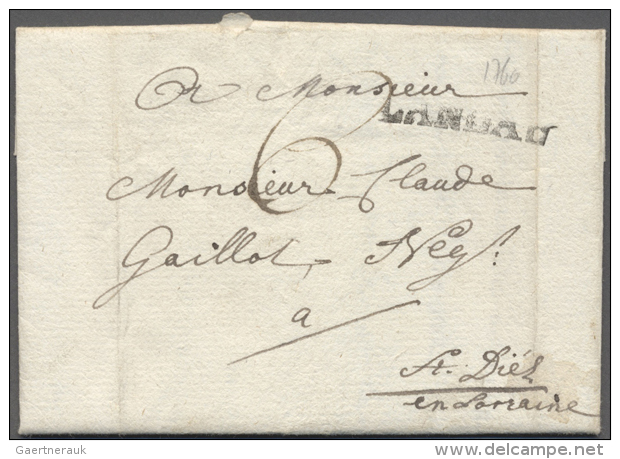 1760
A Monsieur
LANDAU
6
Monsieur Claude
Gaillot, Neg.t
a
St. Diéz
en Lorraine
Gaertnerauk
delcampe.net